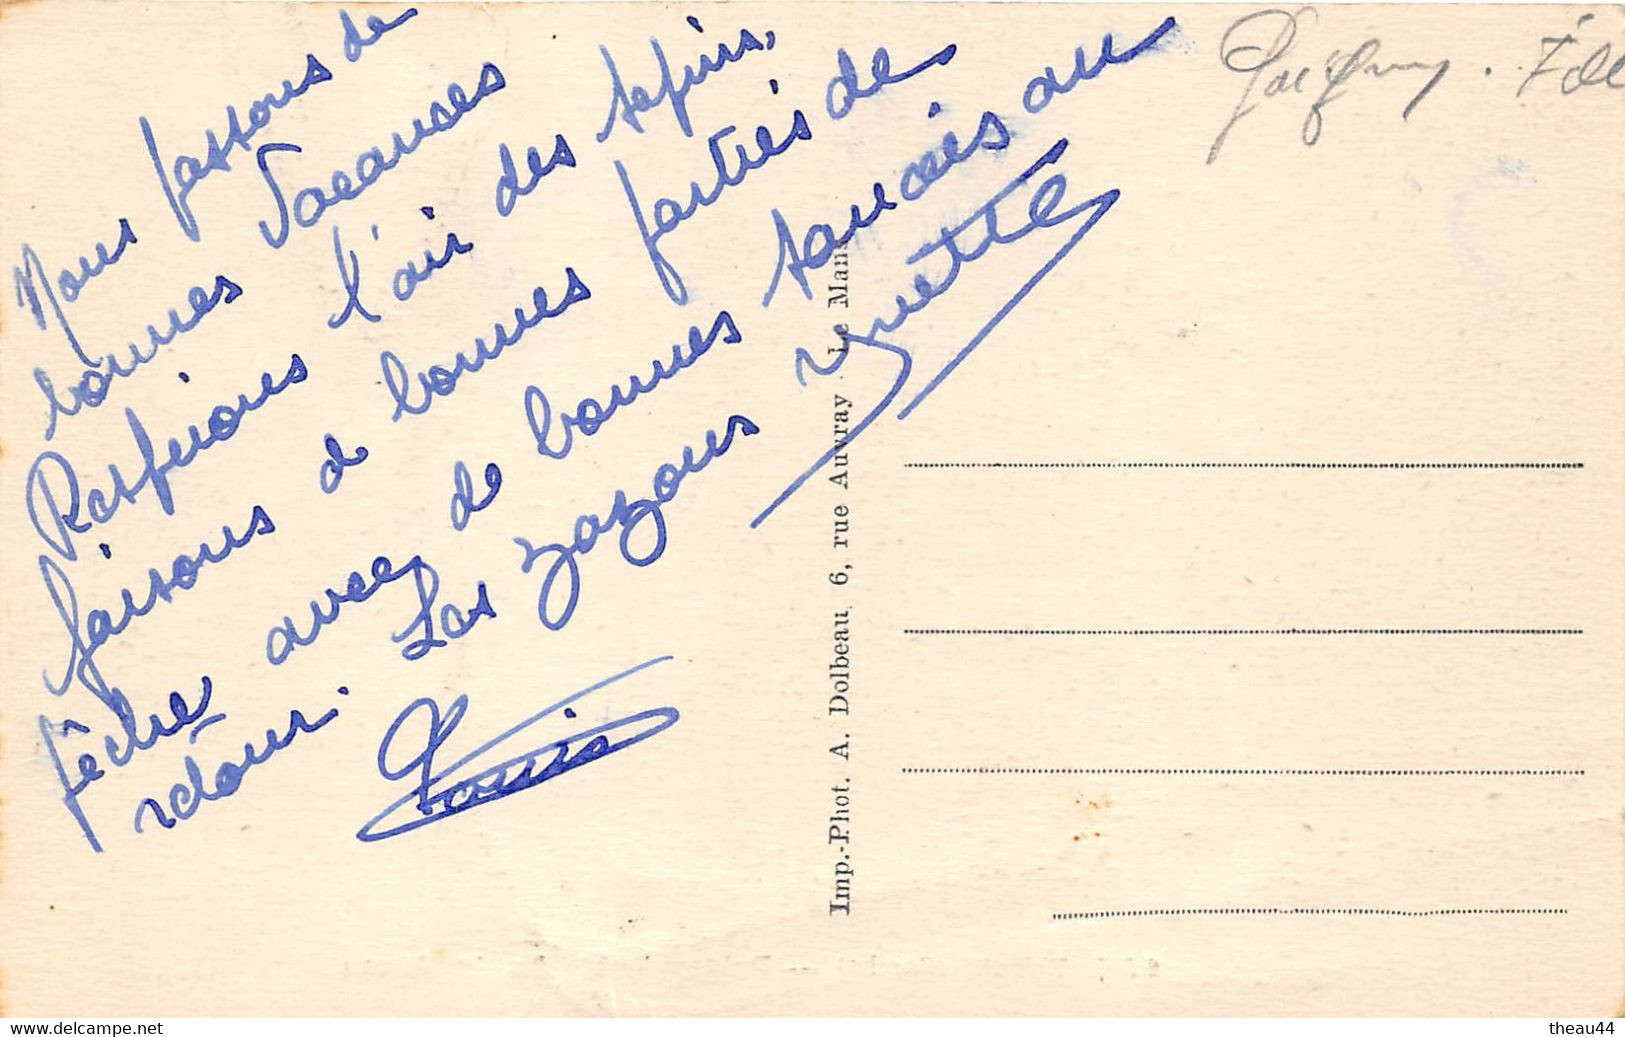 Nous passons de
bonnes Vacances
Respirons l'air des sapins,
faisons de bonnes parties de
pêche avec de bonnes saucées au
retour. Les zazous Yvette
Louis
Imp.-Phot. A. Dolbeau, 6, rue Auvray - Le Mans
www.delcampe.net
theau44